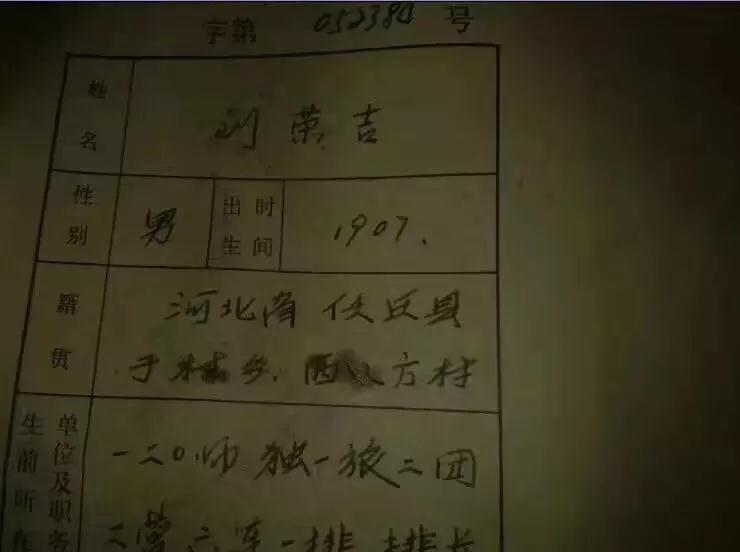 字第 052384 号
姓名 刘荣吉
性别 男 出生时间 1907.
籍贯 河北省 任丘县
于村乡.西八方村
生前所在单位及职务 一二0.师独一旅二团
二营六连一排 排长